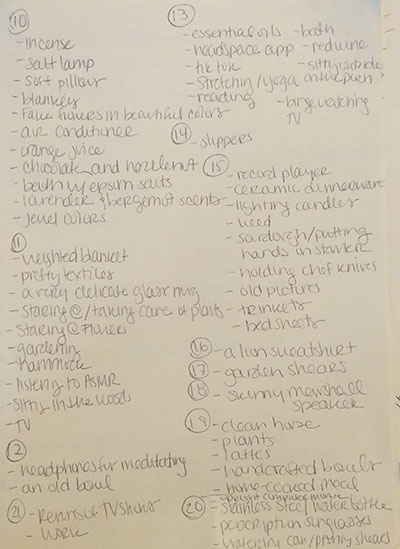 10
- incense
- salt lamp
- soft pillow
- blankets
- Fake flowers in beautiful colors
- air conditioner
- orange juice
- chocolate and hazelnut
- bath w/ epsom salts
- lavender + bergamot scents
- jewel colors
11
- weighted blanket
- pretty textiles
- a very delicate glass mug
- Staring @ / taking care of plants
- Staring @ Flowers
- gardening
- hammock
- listening to ASMR
- sitting in the woods
- TV
12
- headphones for meditating
- an old bowl
21 - Reruns of TV shows
- work
13
- essential oils
- headspace app
- tik tok
- Stretching/yoga
- reading
- bath
- red wine
- sitting outside on the porch
- binge watching TV
14 - slippers
15 - record player
- ceramic dinnerware
- lighting candles
- weed
- sourdough/putting hands in starter
- holding chef knives
- old pictures
- trinkets
- bedsheets
16 - a sweatshirt
17 - garden shears
18 - speaker
19 - clean house
- plants
- lattes
- handcrafted bowls
- home-cooked meal
20 - stainless steel water bottle
- perscription sunglasses
- watering can/pruning shears